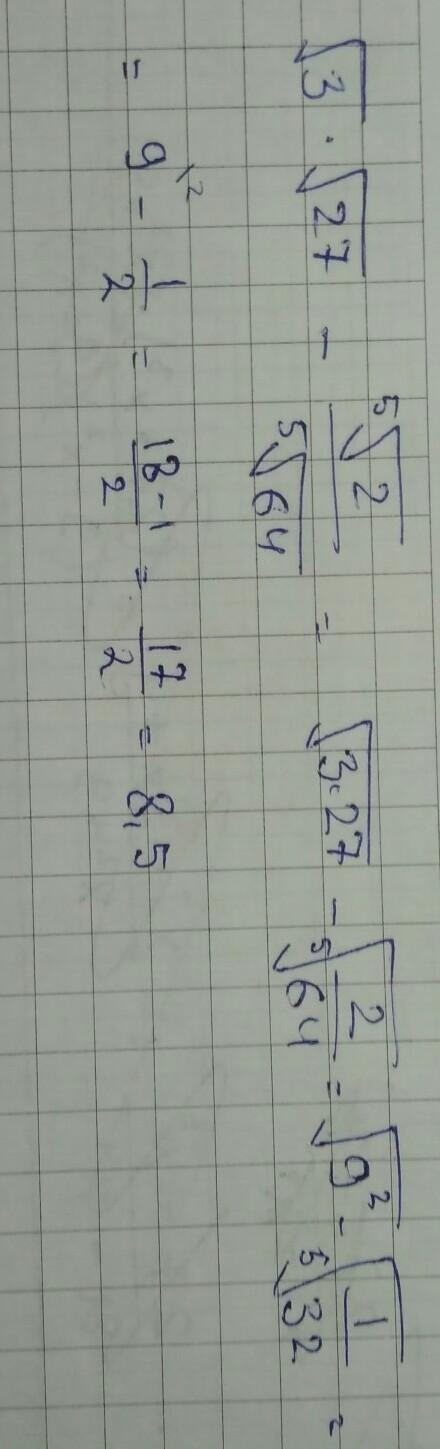 √3 · √27 - ⁵√2 / ⁵√64 = √3·27 - ⁵√(2/64) = √9² - ⁵√(1/32) =
= 9^\2 - 1/2 = (18-1)/2 = 17/2 = 8,5